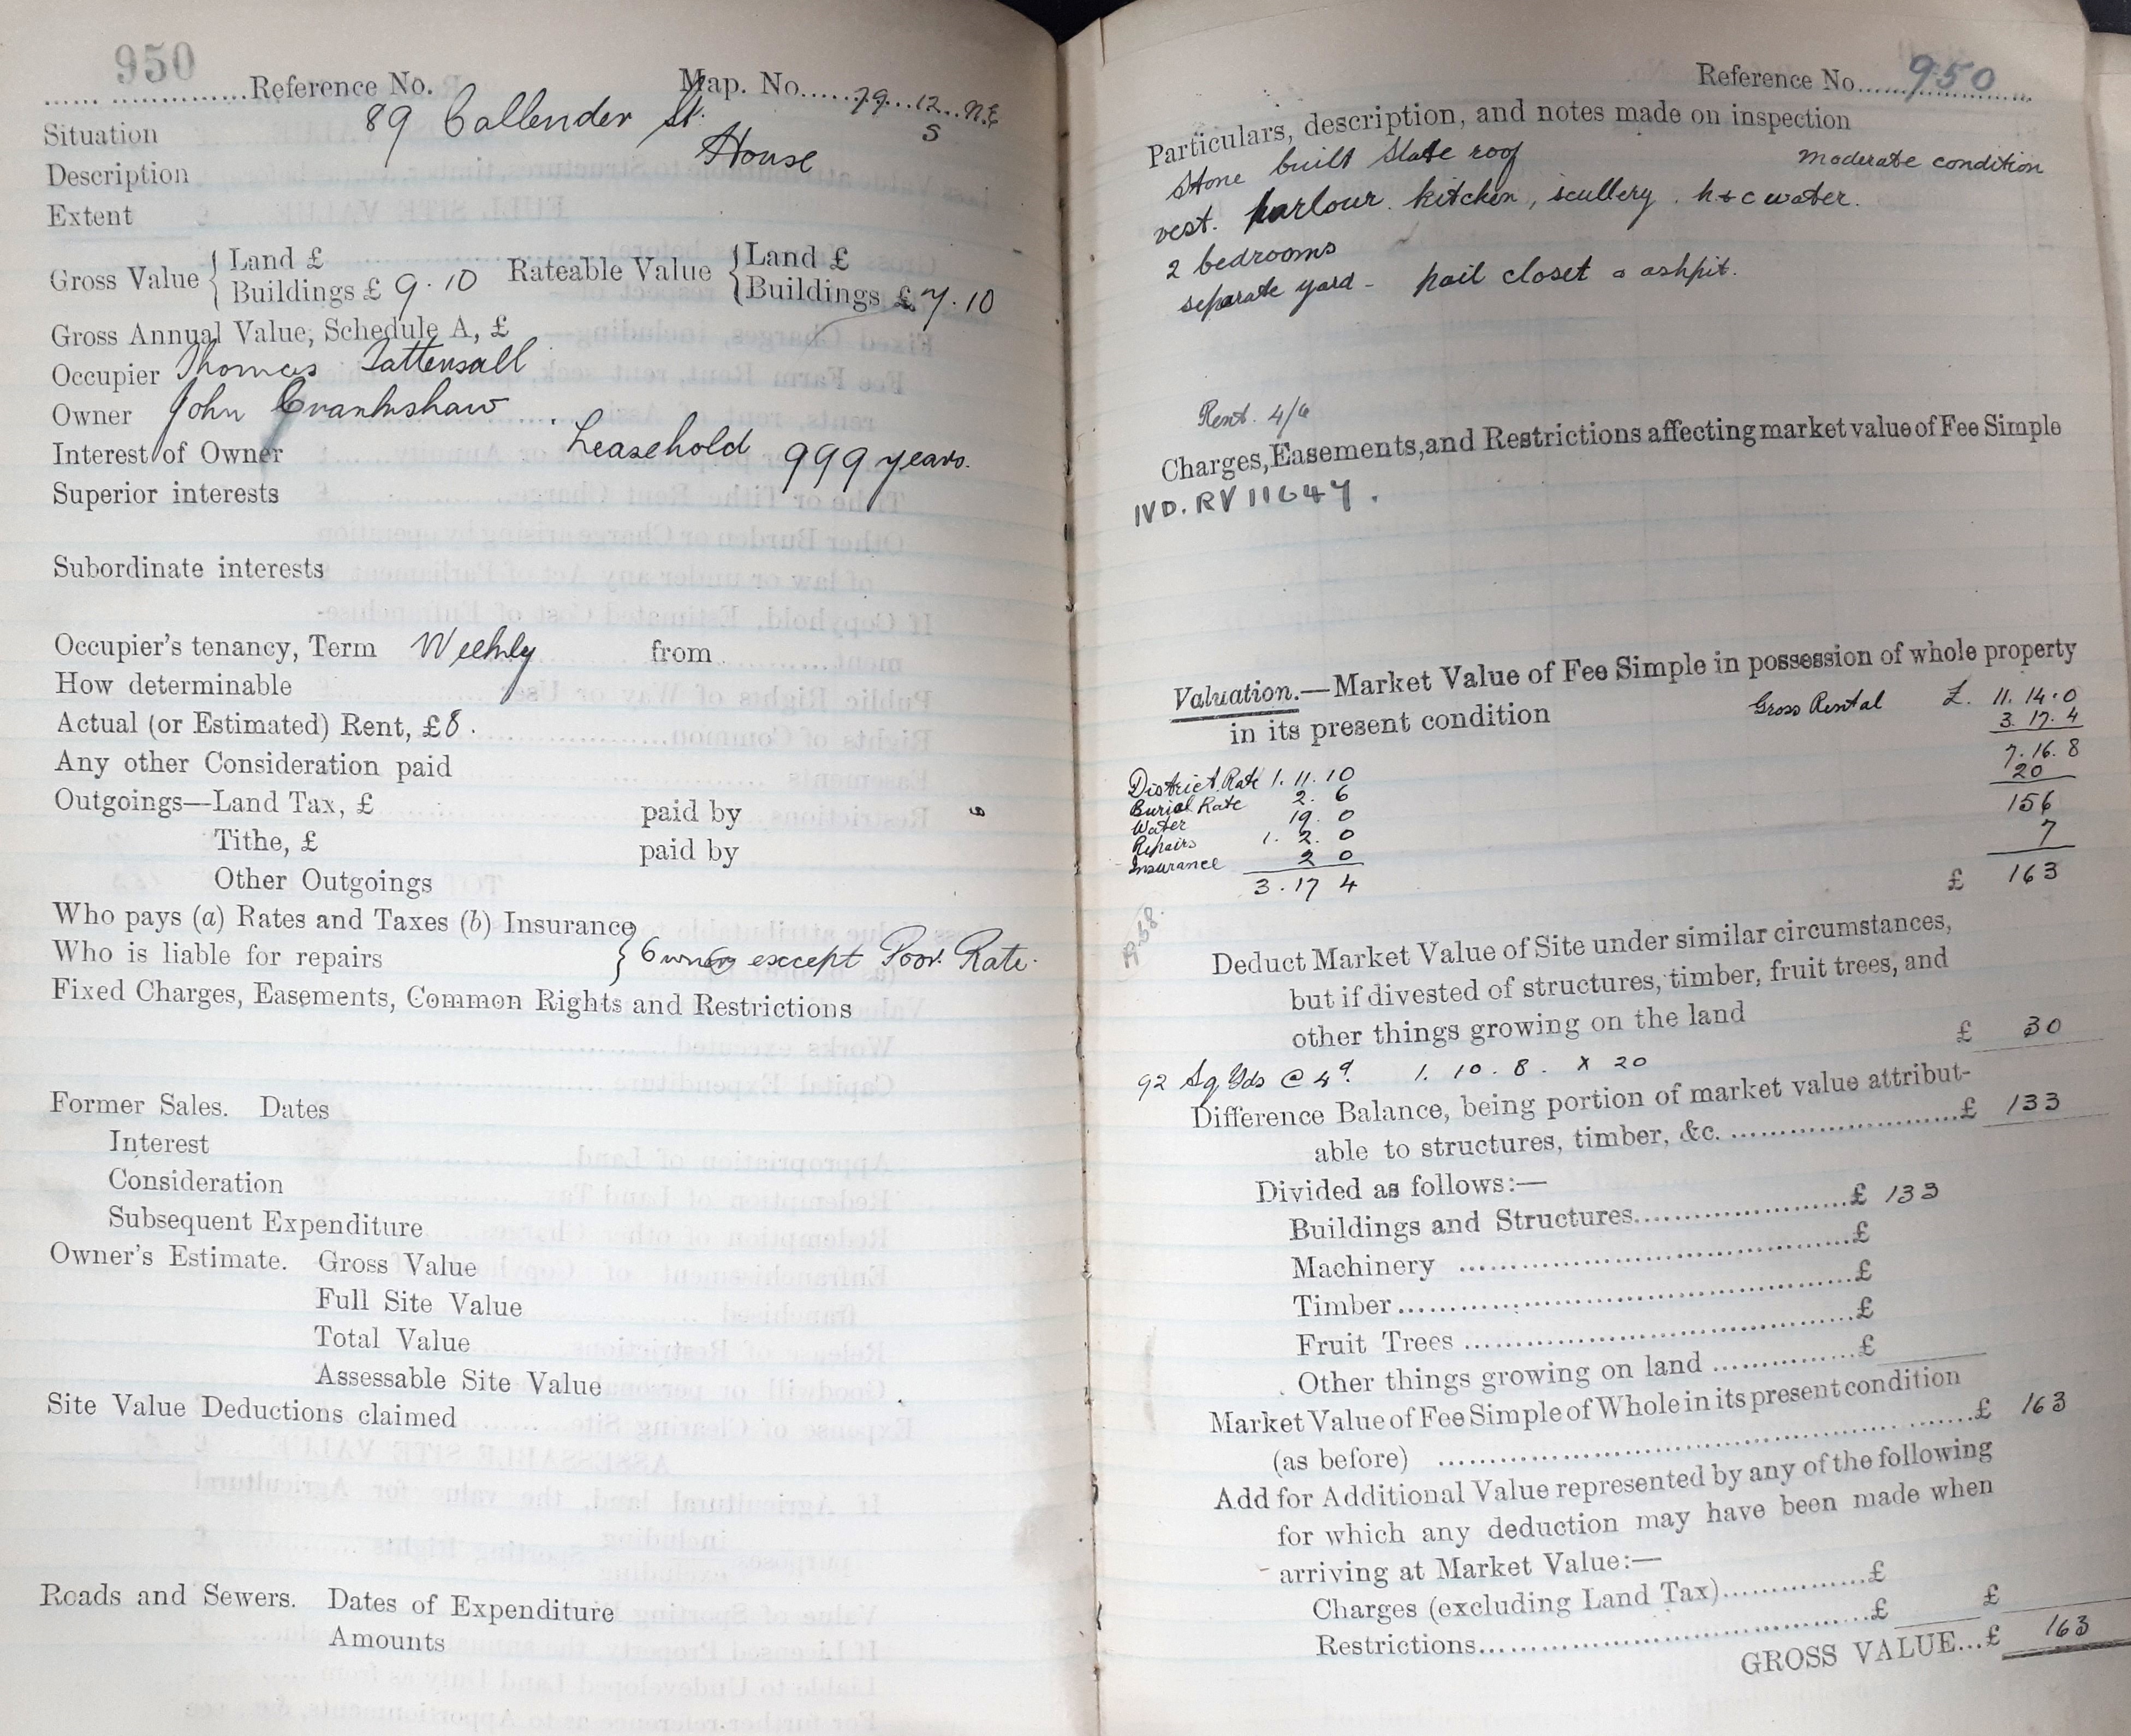 950
Reference No. Map. No. 79 12 N.E
S
Situation 89 Callender St.
Description House
Extent
Gross Value { Land £ Rateable Value { Land £
Buildings £ 9.10 Buildings £ 7.10
Gross Annual Value, Schedule A, £
Occupier Thomas Tattersall
Owner John Crankshaw
Interest of Owner Leasehold 999 years.
Superior interests
Subordinate interests
Occupier's tenancy, Term Weekly from
How determinable
Actual (or Estimated) Rent, £ 8.
Any other Consideration paid
Outgoings—Land Tax, £ paid by
Tithe, £ paid by
Other Outgoings
Who pays (a) Rates and Taxes (b) Insurance
Who is liable for repairs } Owner except Poor Rate.
Fixed Charges, Easements, Common Rights and Restrictions
Former Sales. Dates
Interest
Consideration
Subsequent Expenditure
Owner's Estimate. Gross Value
Full Site Value
Total Value
Assessable Site Value
Site Value Deductions claimed
Roads and Sewers. Dates of Expenditure
Amounts
Reference No. 950
Particulars, description, and notes made on inspection
Stone built Slate roof moderate condition
vest. parlour. kitchen, scullery. h & c water.
2 bedrooms
separate yard - pail closet & ashpit.
Rent. 4/6
Charges, Easements, and Restrictions affecting market value of Fee Simple
IVD. RV 11647.
Valuation.—Market Value of Fee Simple in possession of whole property
in its present condition Gross Rental £. 11. 14. 0
3. 17. 4
7. 16. 8
20
156
7
£ 163
District Rate 1. 11. 10
Burial Rate 2. 6
Water 19. 0
Repairs 1. 2. 0
Insurance 2 0
3. 17 4
Deduct Market Value of Site under similar circumstances,
but if divested of structures, timber, fruit trees, and
other things growing on the land £ 30
92 Sq Yds @ 4d. 1. 10. 8. x 20
Difference Balance, being portion of market value attribut-
able to structures, timber, &c. £ 133
Divided as follows:—
Buildings and Structures £ 133
Machinery £
Timber £
Fruit Trees £
Other things growing on land £
Market Value of Fee Simple of Whole in its present condition
(as before) £ 163
Add for Additional Value represented by any of the following
for which any deduction may have been made when
arriving at Market Value:—
Charges (excluding Land Tax) £
Restrictions £ £
GROSS VALUE...£ 163